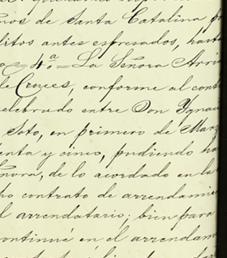 nos de Santa Catalina
litos antes espresados, hasta
4ª = La Señora Arri
de Cruces, conforme al cont
celebrado entre Don Ygnac
Soto, en primero de Marz
enta y cinco, pudiendo ha
ñora, de lo acordado en la
ho contrato de arrendamie
l arrendatario; bien para
continue en el arrendam